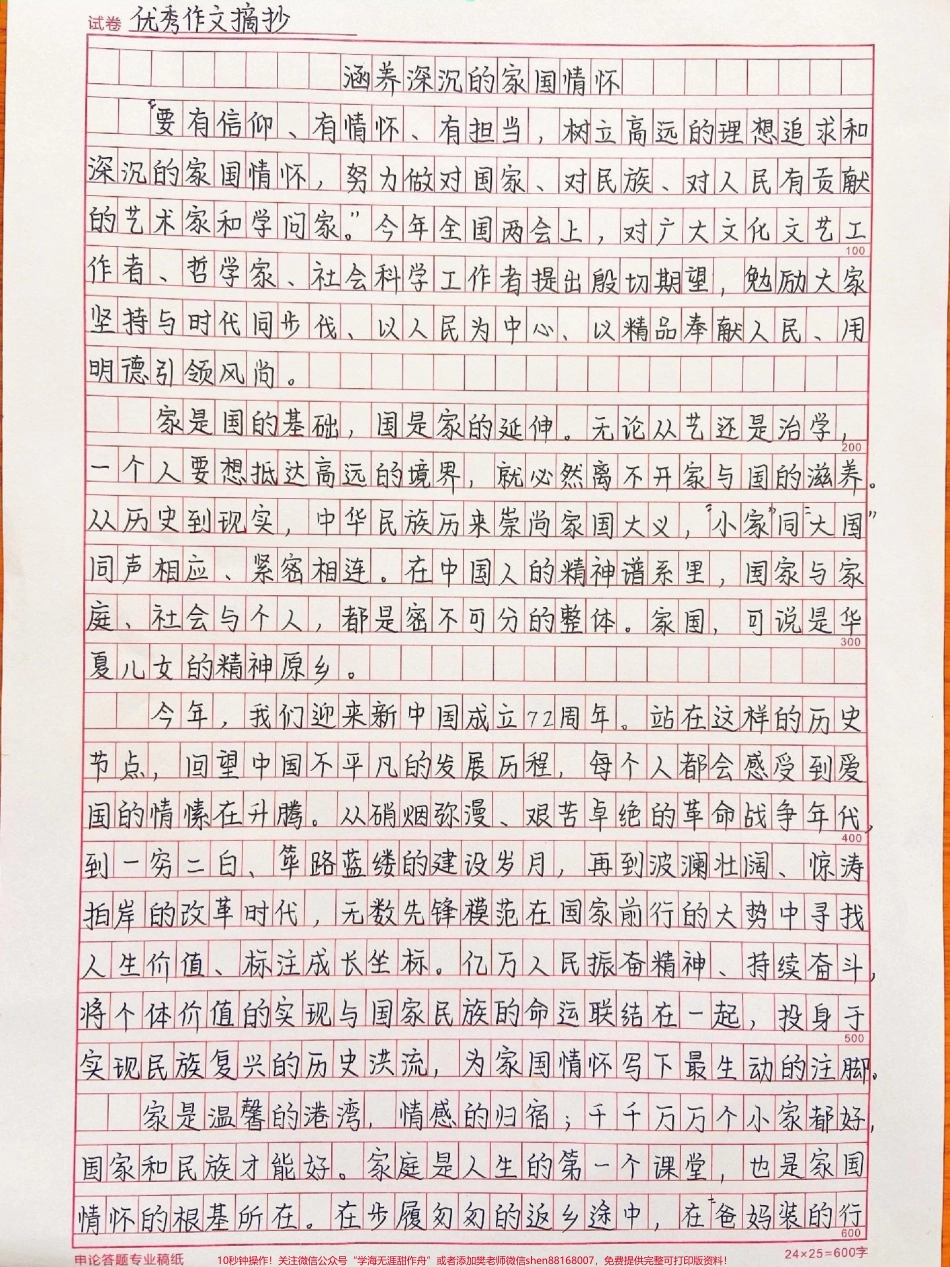 试卷 优秀作文摘抄
涵养深沉的家国情怀
“要有信仰、有情怀、有担当，树立高远的理想追求和
深沉的家国情怀，努力做对国家、对民族、对人民有贡献
的艺术家和学问家。”今年全国两会上，对广大文化文艺工
100
作者、哲学家、社会科学工作者提出殷切期望，勉励大家
坚持与时代同步伐、以人民为中心、以精品奉献人民、用
明德引领风尚。
家是国的基础，国是家的延伸。无论从艺还是治学，
200
一个人要想抵达高远的境界，就必然离不开家与国的滋养。
从历史到现实，中华民族历来崇尚家国大义，“小家”同“大国”
同声相应、紧密相连。在中国人的精神谱系里，国家与家
庭、社会与个人，都是密不可分的整体。家国，可说是华
300
夏儿女的精神原乡。
今年，我们迎来新中国成立72周年。站在这样的历史
节点，回望中国不平凡的发展历程，每个人都会感受到爱
国的情愫在升腾。从硝烟弥漫、艰苦卓绝的革命战争年代，
400
到一穷二白、筚路蓝缕的建设岁月，再到波澜壮阔、惊涛
拍岸的改革时代，无数先锋模范在国家前行的大势中寻找
人生价值、标注成长坐标。亿万人民振奋精神、持续奋斗，
将个体价值的实现与国家民族的命运联结在一起，投身于
500
实现民族复兴的历史洪流，为家国情怀写下最生动的注脚。
家是温馨的港湾，情感的归宿；千千万万个小家都好，
国家和民族才能好。家庭是人生的第一个课堂，也是家国
情怀的根基所在。在步履匆匆的返乡途中，在“爸妈装的行
600
申论答题专业稿纸 10秒钟操作！关注微信公众号“学海无涯甜作舟”或者添加樊老师微信shen88168007，免费提供完整可打印版资料！ 24×25=600字